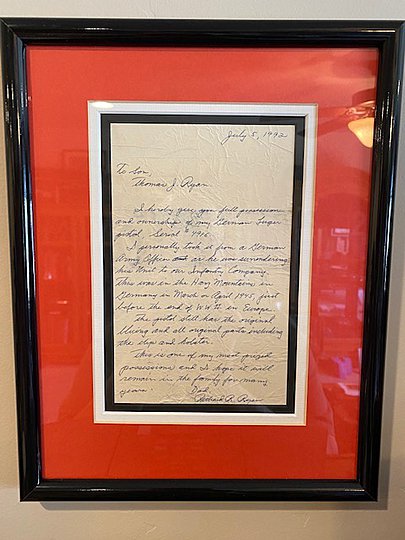 July 5, 1992
To Son,
Thomas J. Ryan
I hereby give you full possession
and ownership of my German Luger
pistol Serial # 4916.
I personally took it from a German
Army Officer as he was surrendering
his Unit to our Infantry Company.
This was in the Harz Mountains in
Germany in March or April 1945 just
before the end of WW II in Europe.
The pistol still has the original
bluing and all original parts including
the clip and holster.
This is one of my most prized
possessions and I hope it will
remain in the family for many
years.
Dad
R. Ryan